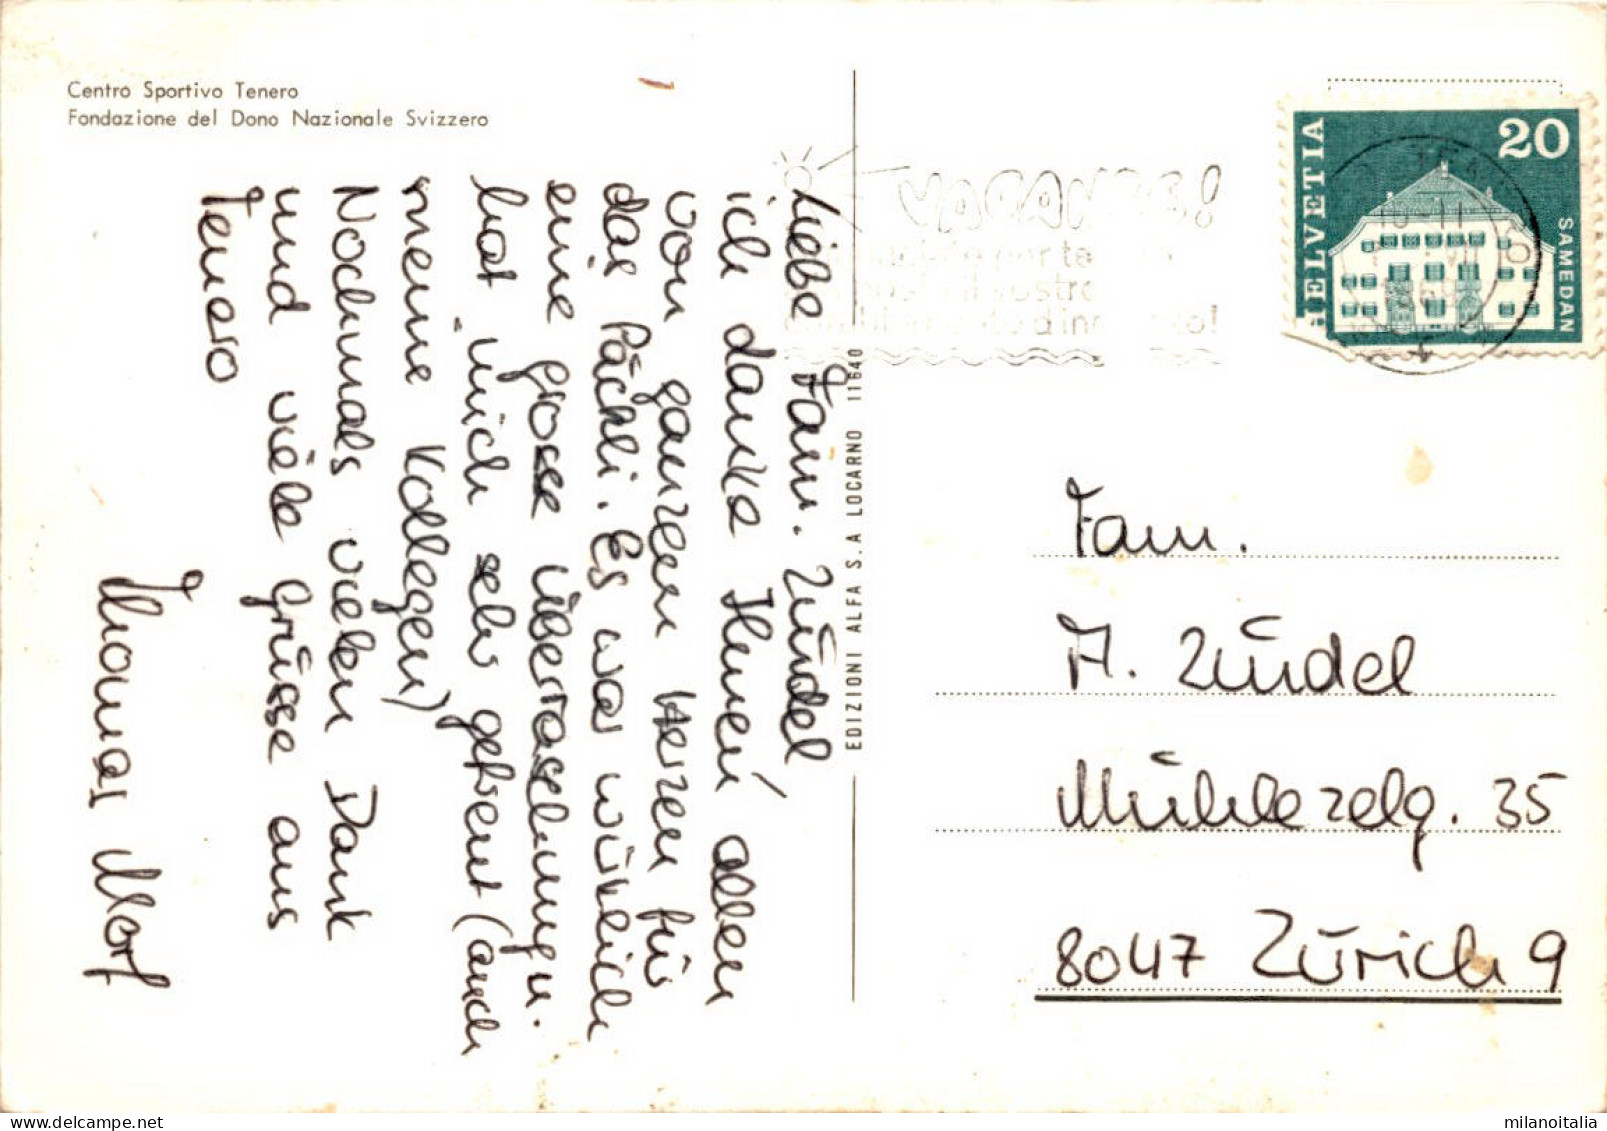 Centro Sportivo Tenero
Fondazione del Dono Nazionale Svizzero
Liebe Fam. Zündel
ich danke Ihnen allen
von ganzem Herzen für
das Päckli. Es war würklich
eine grosse Überraschung u.
hat mich sehr gefreut (auch
meine Kollegen)
Nochmals vielen Dank
und viele Grüsse aus
Tenero
Thomas Morf
EDIZIONI ALFA S.A LOCARNO 11640
VACANZE!
HELVETIA
20
SAMEDAN
Fam.
A. Zündel
Mühlezelg. 35
8047 Zürich 9
milanoitalia